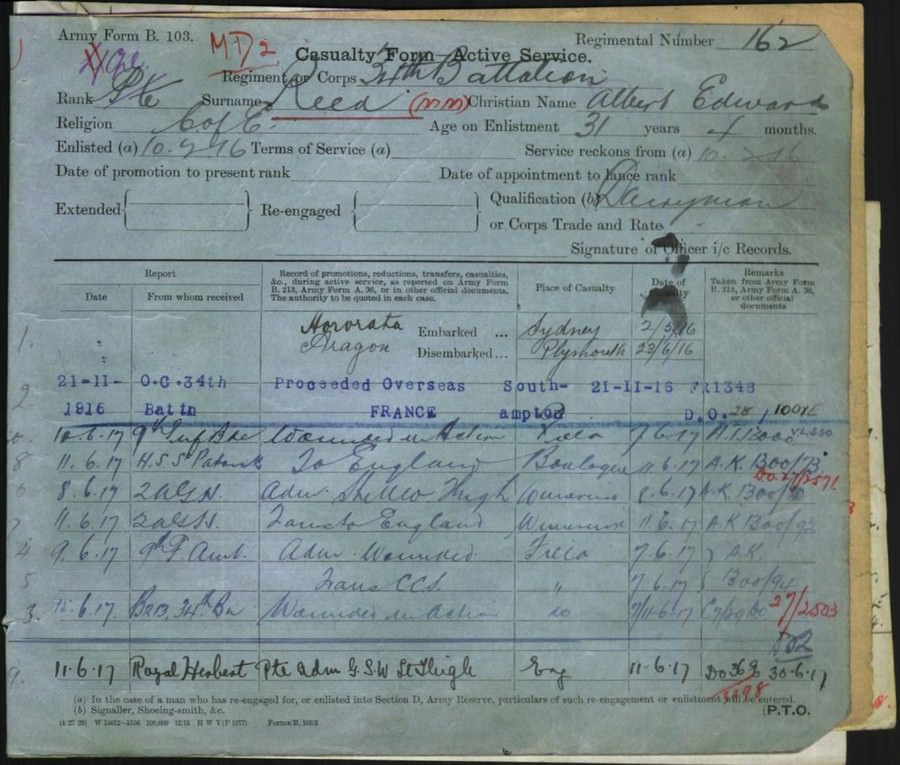 Army Form B. 103.
MD2
Regimental Number 162
Casualty Form Active Service.
Regiment or Corps 34th Battalion
Rank Pte Surname Reed (MM) Christian Name Albert Edward
Religion C of E. Age on Enlistment 31 years 4 months.
Enlisted (a) 10.2.16 Terms of Service (a) Service reckons from (a) 10.2.16
Date of promotion to present rank Date of appointment to lance rank
Extended Re-engaged Qualification (b) Dairyman
or Corps Trade and Rate
Signature of Officer i/c Records.
Report
Date From whom received
Record of promotions, reductions, transfers, casualties,
&c., during active service, as reported on Army Form
B. 213, Army Form A. 36, or in other official documents.
The authority to be quoted in each case.
Place of Casualty
Date of
Remarks
Taken from Army Form
B. 213, Army Form A. 36,
or other official
documents
1. Hororata Embarked ... Sydney 2/5/16
Aragon Disembarked... Plymouth 23/6/16
2 21-11- O.C.34th Proceeded Overseas South- 21-11-16 FR1348
1916 Battn FRANCE ampton D.O. 28 / 1001E
10.6.17 9th Inf Bde Wounded in Action Field 7.6.17
8 11.6.17 H.S. St Patrick To England Boulogne 11.6.17 A.K. 1300/73
27/2571
6 8.6.17 2 AGH. Adm. Thigh Wimereux 8.6.17 A.K. 1300/
7 11.6.17 2 AGH. Trans to England Wimereux 11.6.17 A.K. 1300/93
4 9.6.17 9th F. Amb. Adm Wounded Field 7.6.17 } A.K.
5 Trans CCS. " 7.6.17 } 1300/94
3. 15.6.17 B213 34th Bn Wounded in Action do 7/11.6.17 27/2503
9. 11.6.17 Royal Herbert Pte Adm G.S.W Lt Thigh Eng 11.6.17 Do 369 30.6.17
(a) In the case of a man who has re-engaged for, or enlisted into Section D, Army Reserve, particulars of such re-engagement or enlistment will be entered.
(b) Signaller, Shoeing-smith, &c.
[P.T.O.